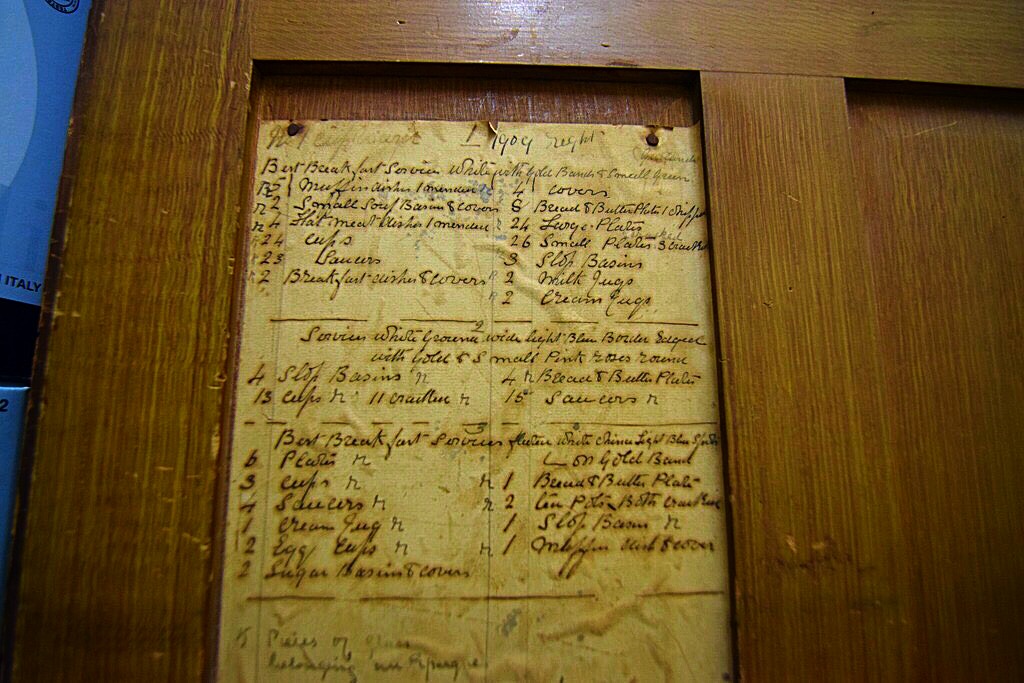 ITALY
2
No 1 1909
Best Breakfast Service White with Gold Bands & Small Green
2 Muffin dishes 1 mended 4 covers
2 Small Soup Basins & covers 8 Bread & Butter Plates 1 chipped
4 Flat meat dishes 1 mended 24 Large Plates
24 cups 26 Small Plates 3 cracked
23 Saucers 3 Slop Basins
2 Breakfast dishes & covers 2 Milk Jugs
2 Cream Jugs
2
Service White Ground wide light Blue Border Edged
with Gold & Small Pink roses round
4 Slop Basins 4 Bread & Butter Plates
13 cups 11 cracked 15 Saucers
3
Best Breakfast Services White china Light Blue Spots
on Gold Band
6 Plates
3 cups 1 Bread & Butter Plate
4 Saucers 2 Pots Both cracked
1 cream Jug 1 Slop Basin
2 Egg Cups 1 Muffin dish & cover
2 Sugar Basins & covers
Pieces of glass
belonging an Epergne